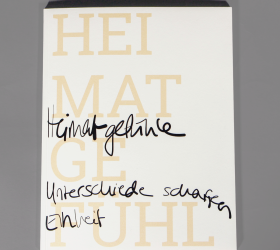 HEI
MAT
Heimatgefühle
GE
Unterschiede schaffen
Einheit
FÜHL